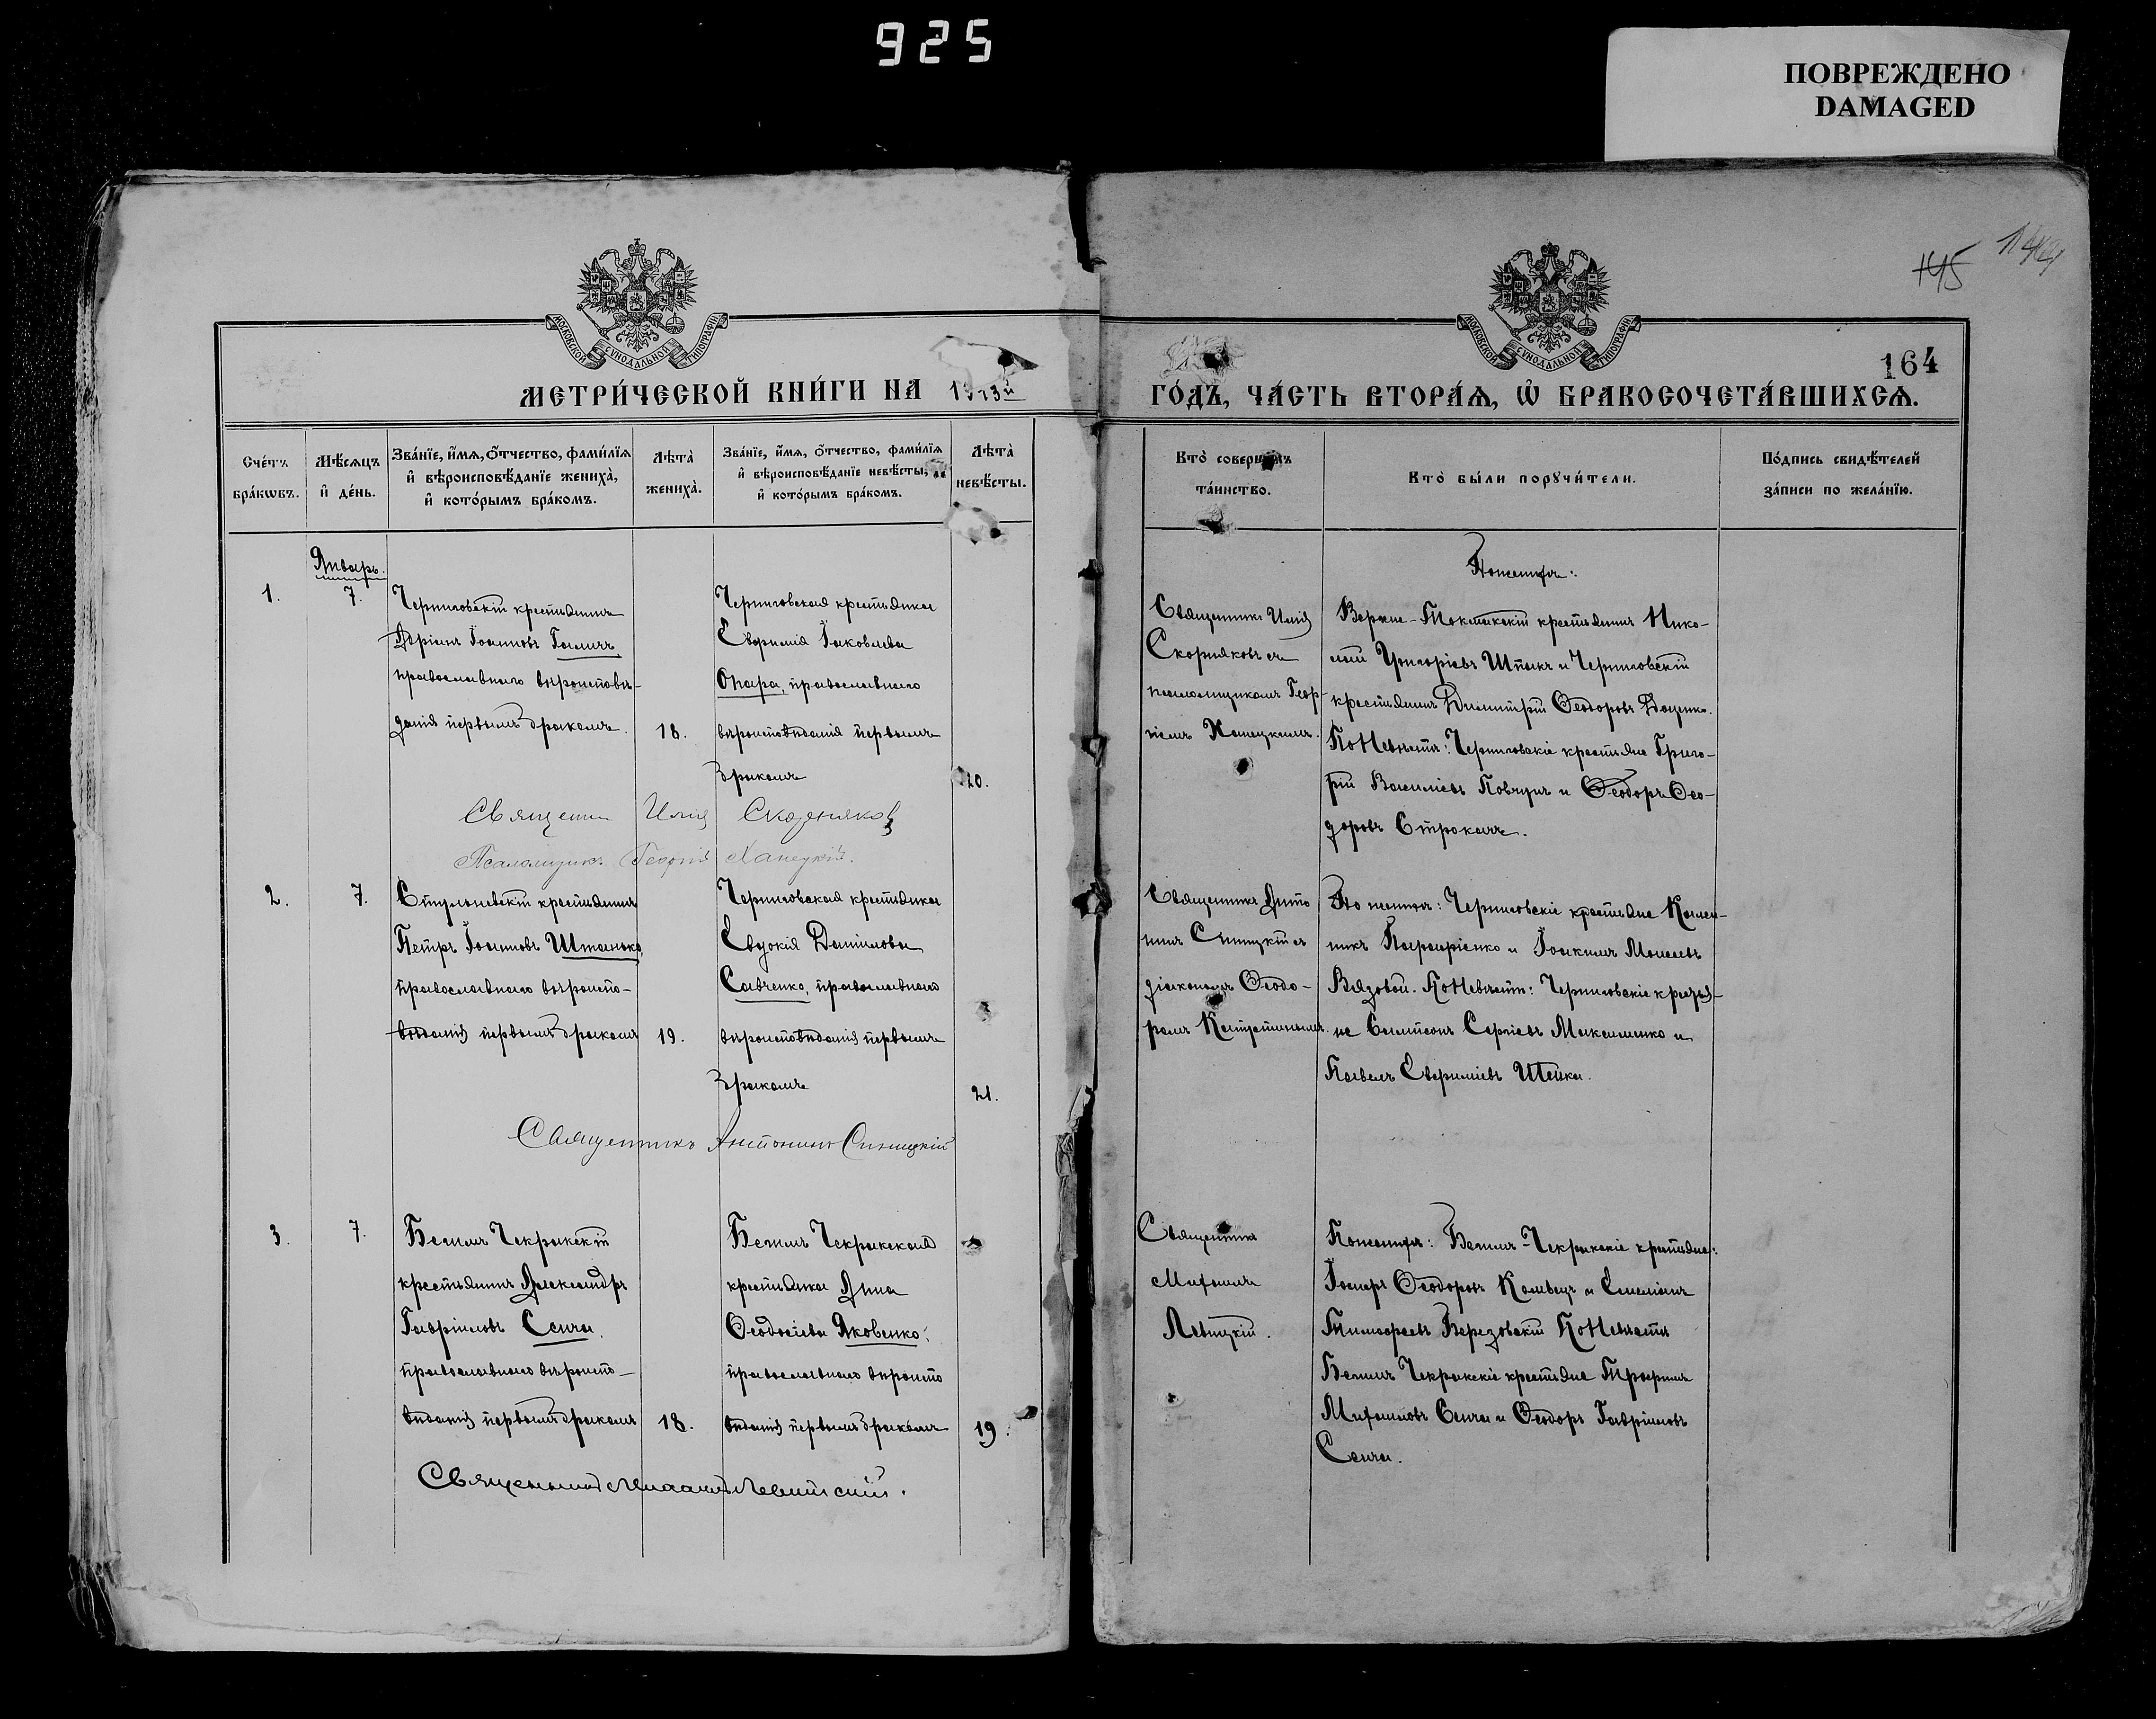 925
ПОВРЕЖДЕНО
DAMAGED
145
164
МОСКОВСКОЙ СУНОДАЛЬНОЙ ТИПОГРАФІИ
МОСКОВСКОЙ СУНОДАЛЬНОЙ ТИПОГРАФІИ
МЕТРИ́ЧЕСКОЙ КНИ́ГИ НА
ГО́ДЪ, ЧА́СТЬ ВТОРА́Ѧ, Ѡ҆ БРАКОСОЧЕТА́ВШИХСѦ.
Сче́тъ бра́кѡвъ.
Мѣ́сѧцъ и҆ де́нь.
Зва́нїе, и҆́мѧ, ѻ҆́тчество, фами́лїѧ
и҆ вѣроисповѣ́данїе жениха̀,
и҆ кото́рымъ бра́комъ.
Лѣта̀ жениха̀.
Зва́нїе, и҆́мѧ, ѻ҆́тчество, фами́лїѧ
и҆ вѣроисповѣ́данїе невѣ́сты,
и҆ кото́рымъ бра́комъ.
Лѣта̀ невѣ́сты.
Кто̀ соверши́лъ та́инство.
Кто̀ бы́ли порꙋчи́тели.
По́дпись свидѣ́телей за́писи по жела́нїю.
Январь.
1.
7.
Черниговскій крестьянинъ
Адріанъ Іоанновъ Галичъ
православнаго вѣроисповѣ-
данія первымъ бракомъ.
18.
Черниговская крестьянка
Евфимія Іаковлева
Опара, православнаго
вѣроисповѣданія первымъ
бракомъ
20.
Священникъ Илія
Скорняковъ съ
псаломщикомъ Геор-
гіемъ Ханецкимъ.
По женихѣ:
Верхне-Токмакскій крестьянинъ Нико-
лай Григоріевъ Шпакъ и Черниговскій
крестьянинъ Димитрій Ѳеодоровъ Доценко.
По Невѣстѣ: Черниговскіе крестьяне Григо-
рій Василіевъ Ковтунъ и Ѳеодоръ Ѳео-
доровъ Строкачъ.
Священ Илия Скорняков
Псаломщикъ Георгій Ханецкій.
2.
7.
Стульневскій крестьянинъ
Петръ Іоанновъ Штанько,
православнаго вѣроиспо-
вѣданія первымъ бракомъ
19.
Черниговская крестьянка
Евдокія Даніилова
Савченко, православнаго
вѣроисповѣданія первымъ
бракомъ
21.
Священникъ Анто
нинъ Синицкій съ
діакономъ Ѳеодо-
ромъ Капустинымъ.
По женихѣ: Черниговскіе крестьяне Калли-
никъ Парфиріенко и Іоакимъ Моисеевъ
Вязовой. По Невѣстѣ: Черниговскіе крестья-
не Сампсонъ Сергіевъ Максименко и
Павелъ Евфиміевъ Шейка.
Священникъ Антонинъ Синицкій
3.
7.
Бегимъ Чекракскій
крестьянинъ Александръ
Гавріиловъ Сенча,
православнаго вѣроиспо-
вѣданія первымъ бракомъ
18.
Бегимъ Чекракская
крестьянка Анна
Ѳеодосіева Яковенко,
православнаго вѣроиспо
вѣданія первымъ бракомъ
19.
Священникъ
Михаилъ
Левитскій.
По женихѣ: Бегимъ-Чекракскіе крестьяне:
Іосифъ Ѳеодоровъ Коливецъ и Емеліанъ
Тимофеевъ Березовскій По Невѣстѣ
Бегимъ Чекракскіе крестьяне Трофимъ
Михаиловъ Сенча и Ѳеодоръ Гавріиловъ
Сенча.
Священникъ Михаилъ Левитский.